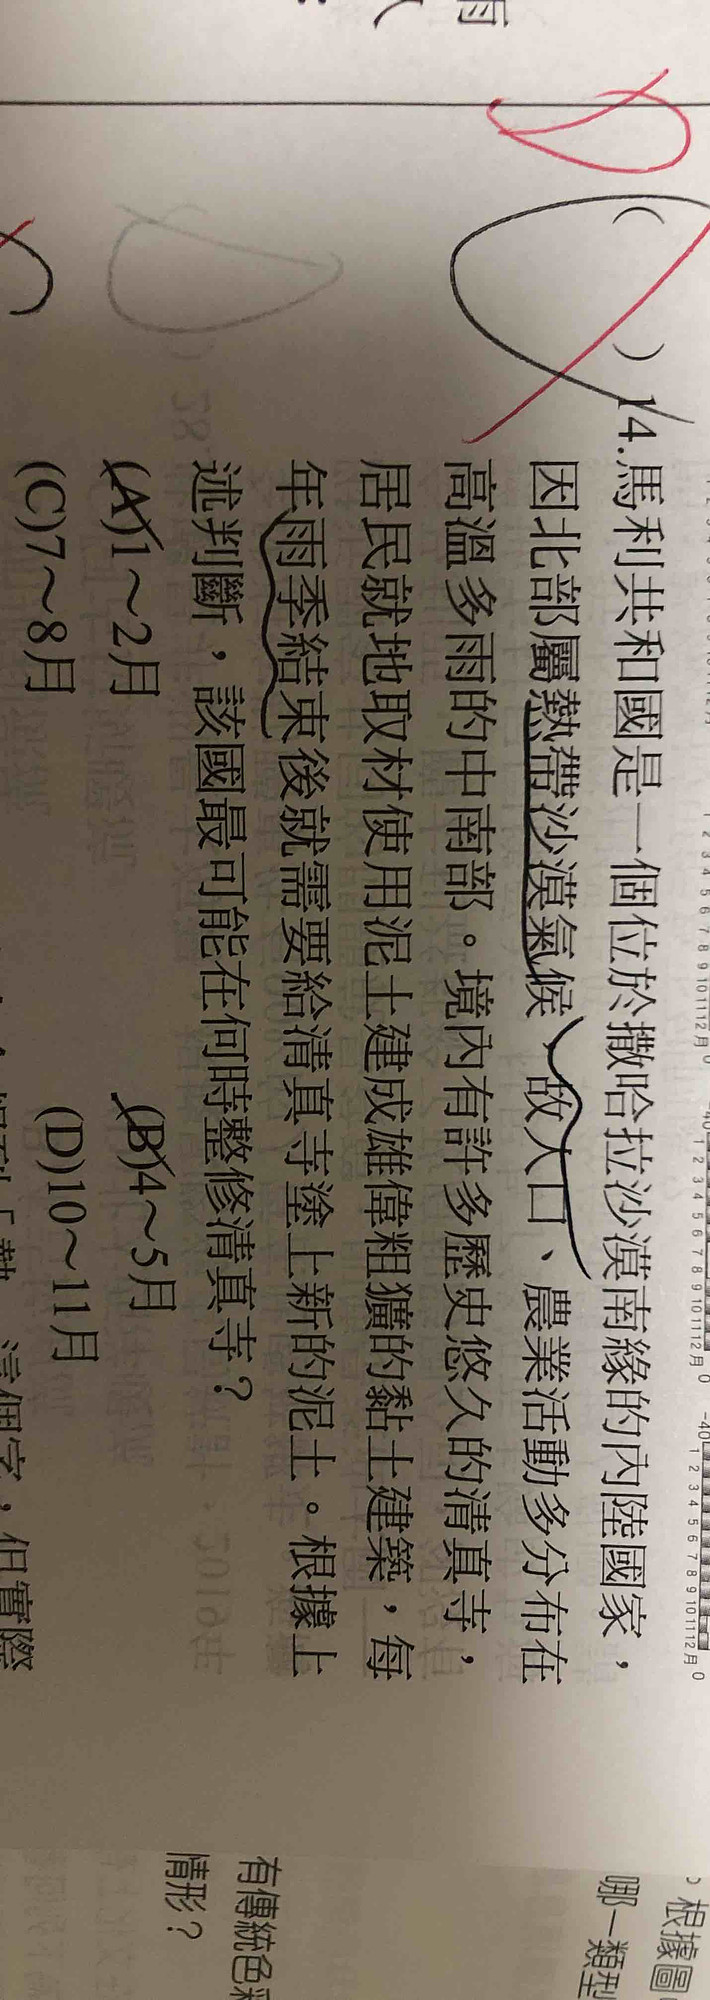 D
( )14.馬利共和國是一個位於撒哈拉沙漠南緣的內陸國家，
因北部屬熱帶沙漠氣候，故人口、農業活動多分布在
高溫多雨的中南部。境內有許多歷史悠久的清真寺，
居民就地取材使用泥土建成雄偉粗獷的黏土建築，每
年雨季結束後就需要給清真寺塗上新的泥土。根據上
述判斷，該國最可能在何時整修清真寺？
(A)1～2月 (B)4～5月
(C)7～8月 (D)10～11月
這個字，但實際
。根據圖
哪一類型
有傳統色彩
情形？